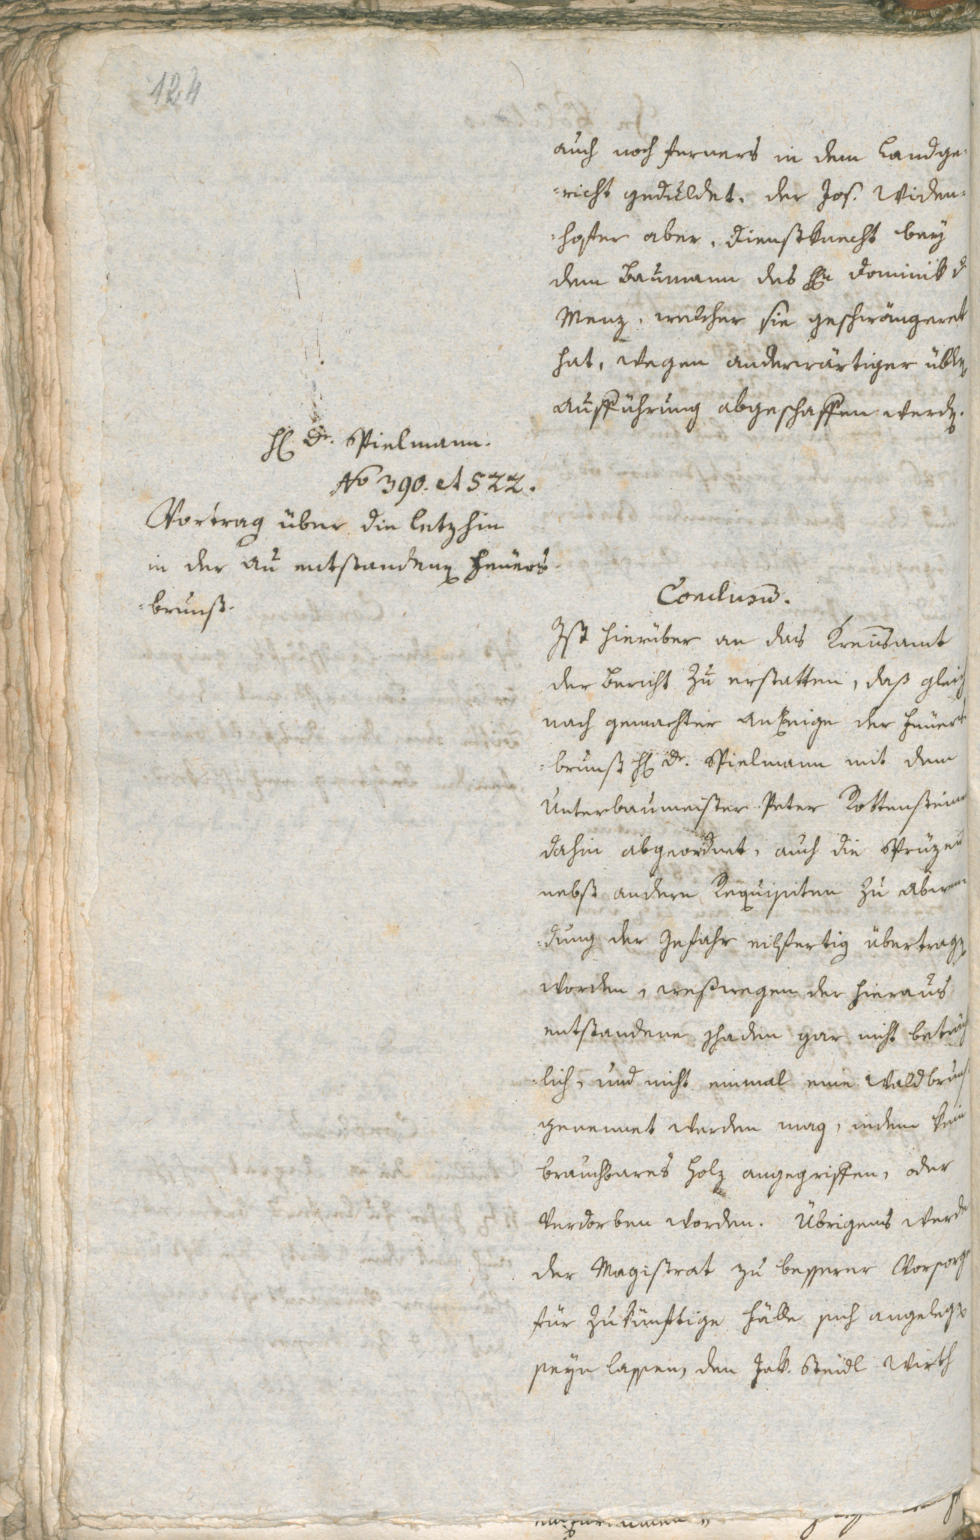 124
auch noch ferners in dem Landge-
-richt geduldet. der Jos. Widen-
-hofer aber, Dienstknecht bey
dem Baumann des Hn Dominik v
Menz, welcher sie geschwängeret
hat, wegen anderwärtiger üblen
Aufführung abgeschaffen werden.
H. Dr. Spielmann.
No 390. et 522.
Vortrag über die letzhin
in der Au entstandenen Feuers-
-brunst.
Conclusum.
Ist hierüber an das Kreisamt
der Bericht zu erstatten, daß gleich
nach gemachter Anzeige der Feuers-
-brunst H. Dr. Spielmann mit dem
Unterbaumeister Peter Rottensteiner
dahin abgeordnet, auch die Sprüzen
nebst andern Requisiten zu Abwen-
-dung der Gefahr eilfertig übertragen
worden, weßwegen der hieraus
entstandene Schaden gar nicht beträcht-
-lich, und nicht einmal eine Waldbrunst
genennet werden mag, indem kein
brauchbares Holz angegriffen, oder
verdorben worden. Übrigens werde
der Magistrat zu besserer Vorsorge
für zukünftige Fälle sich angelegen
seyn lassen, den Jak. Steidl Wirth